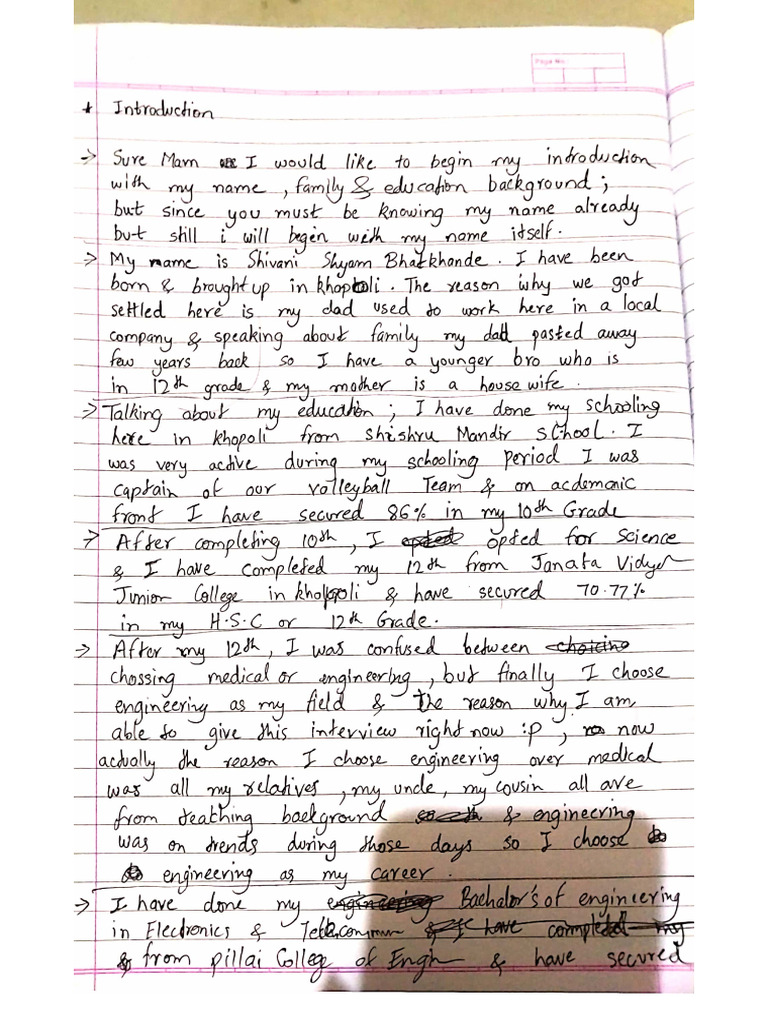 Page No.:
* Introduction
-> Sure Mam I would like to begin my introduction
with my name , family & education background ;
but since you must be knowing my name already
but still i will begin with my name itself.
-> My name is Shivani Shyam Bhatkhande. I have been
born & brought up in khopoli. The reason why we got
settled here is my dad used to work here in a local
company & speaking about family my dad pasted away
few years back so I have a younger bro who is
in 12th grade & my mother is a house wife.
-> Talking about my education ; I have done my schooling
here in khopoli from Shishru Mandir school. I
was very active during my schooling period I was
captain of our volleyball Team & on acdemonic
front I have secured 86% in my 10th Grade
-> After completing 10th, I opted opted for science
& I have completed my 12th from Janata Vidya
Junior College in khopoli & have secured 70.77%
in my H.S.C or 12th Grade.
-> After my 12th, I was confused between choicing
chossing medical or engineering, but finally I choose
engineering as my field & the reason why I am
able to give this interview right now :p , now
actually the reason I choose engineering over medical
was all my relatives , my uncle, my cousin all are
from teathing background & engineering
was on trends during those days so I choose
engineering as my career.
-> I have done my engineering Bachalor's of engineering
in Electronics & Telecommun & I have completed my
& from pillai College of Engh & have secured